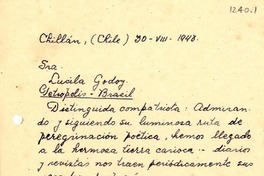 1240.1
Chillán, (Chile) 30-VIII-1943.
Sra.
Lucila Godoy.
Petrópolis - Brasil
Distinguida compatriota: Admiran-
do y siguiendo su luminosa ruta de
peregrinación poética, hemos llegado
a la hermosa tierra carioca - diarios
y revistas nos traen periódicamente sus